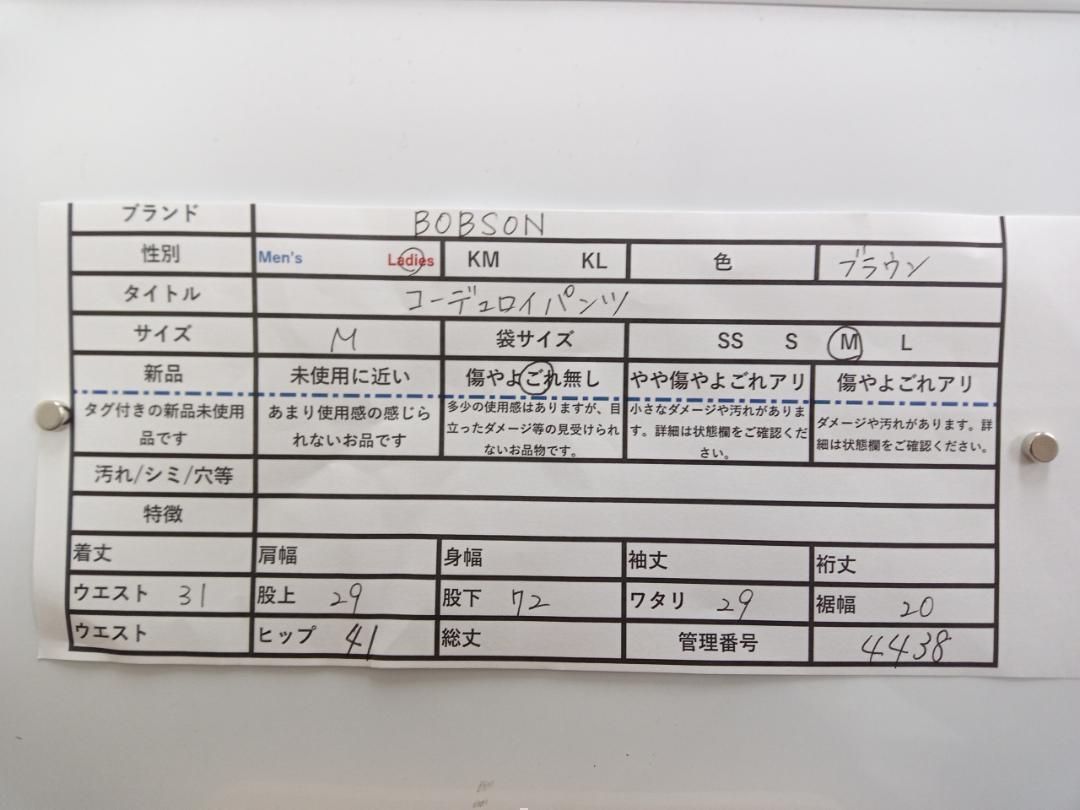 ブランド BOBSON
性別 Men's Ladies KM KL 色 ブラウン
タイトル コーデュロイパンツ
サイズ M 袋サイズ SS S M L
新品 未使用に近い 傷やよごれ無し やや傷やよごれアリ 傷やよごれアリ
タグ付きの新品未使用 あまり使用感の感じら 多少の使用感はありますが、目 小さなダメージや汚れがありま ダメージや汚れがあります。詳
品です れないお品です 立ったダメージ等の見受けられ す。詳細は状態欄をご確認くだ 細は状態欄をご確認ください。
ないお品物です。 さい。
汚れ/シミ/穴等
特徴
着丈 肩幅 身幅 袖丈 裄丈
ウエスト 31 股上 29 股下 72 ワタリ 29 裾幅 20
ウエスト ヒップ 41 総丈 管理番号 4438